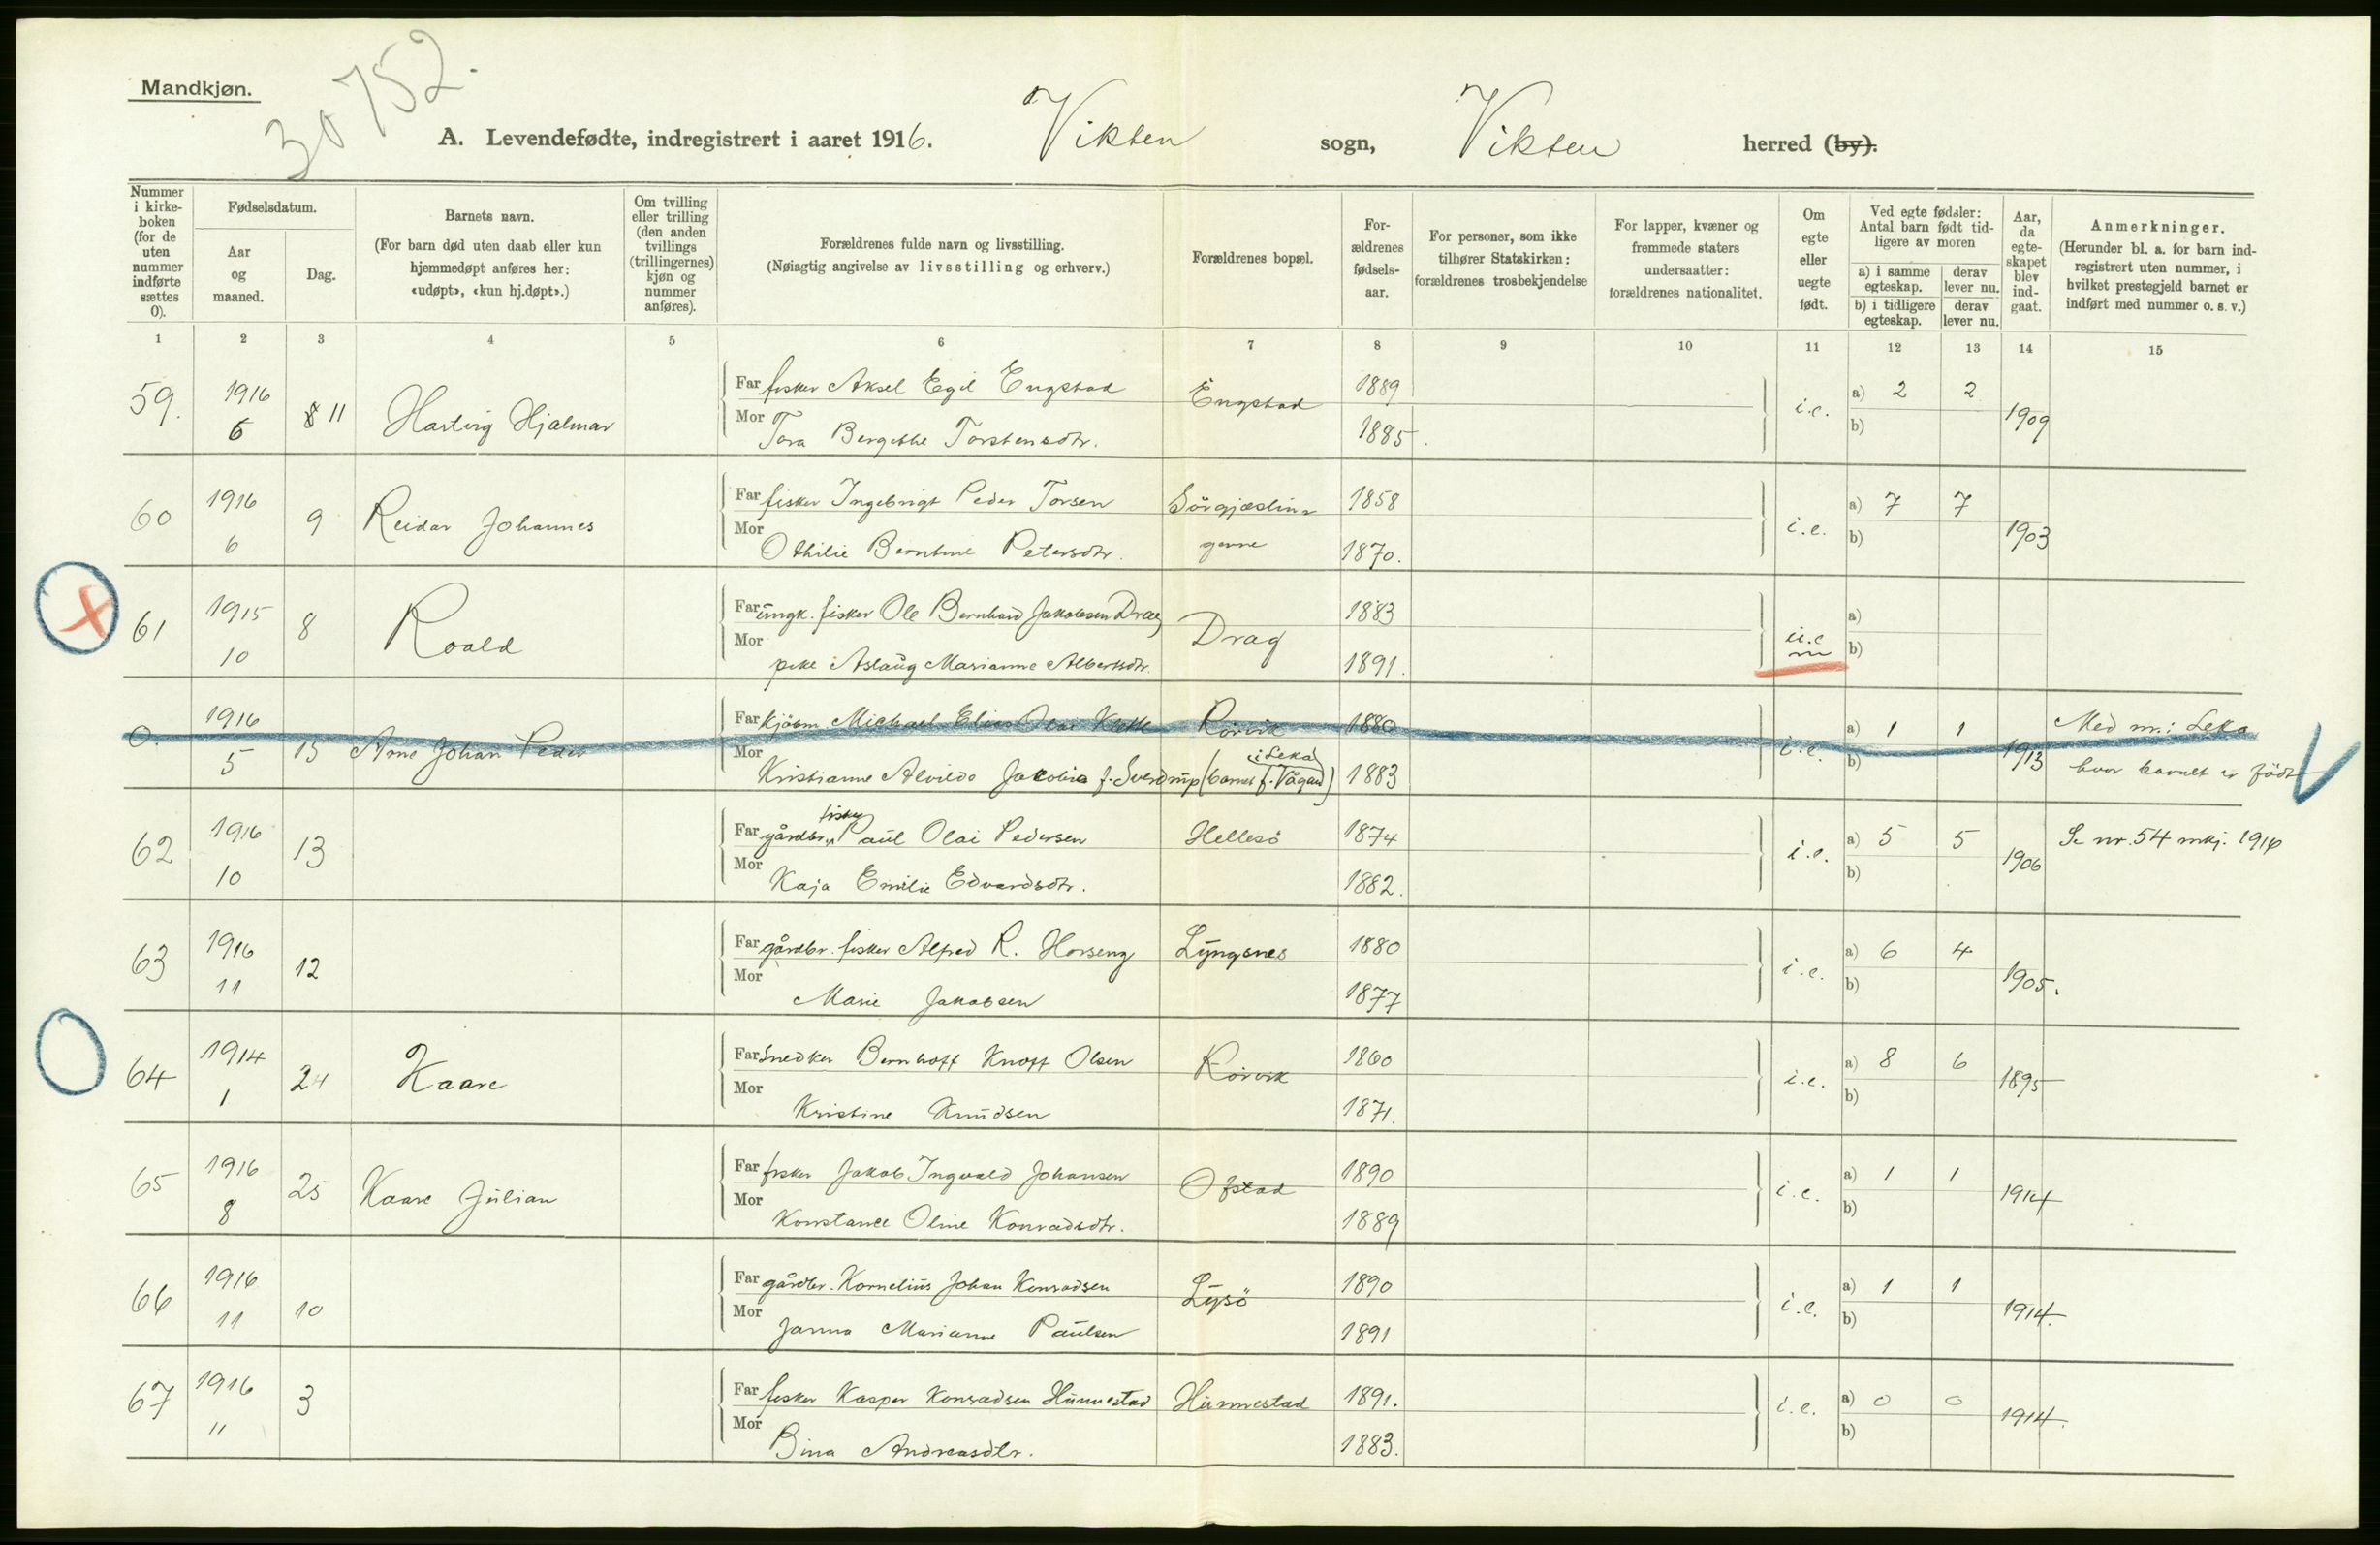 Mandkjøn.
30752.
A. Levendefødte, indregistrert i aaret 1916. Vikten sogn, Vikten herred (by).
Nummer i kirke-boken (for de uten nummer indførte sættes 0).
Fødselsdatum.
Aar og maaned.
Dag.
Barnets navn.
(For barn død uten daab eller kun hjemmedøpt anføres her: «udøpt», «kun hj.døpt».)
Om tvilling eller trilling (den anden tvillings (trillingernes) kjøn og nummer anføres).
Forældrenes fulde navn og livsstilling.
(Nøiagtig angivelse av livsstilling og erhverv.)
Forældrenes bopæl.
For-ældrenes fødsels-aar.
For personer, som ikke tilhører Statskirken: forældrenes trosbekjendelse
For lapper, kvæner og fremmede staters undersaatter: forældrenes nationalitet.
Om egte eller uegte født.
Ved egte fødsler: Antal barn født tid-ligere av moren
a) i samme egteskap.
derav lever nu.
b) i tidligere egteskap.
derav lever nu.
Aar, da egte-skapet blev ind-gaat.
Anmerkninger.
(Herunder bl. a. for barn ind-registrert uten nummer, i hvilket prestegjeld barnet er indført med nummer o. s. v.)
1 2 3 4 5 6 7 8 9 10 11 12 13 14 15
59. 1916 6 11 Hartvig Hjalmar Far fisker Aksel Egil Engstad Engstad 1889 i.e. a) 2 2 1909
Mor Tora Bergitte Torstensdtr. 1885. b)
60 1916 6 9 Reidar Johannes Far fisker Ingebrigt Peder Torsen 1858 i.e. a) 7 7 1903
Mor Othilie Berntine Petersdtr. 1870. b)
61 1915 10 8 Roald Far ungk. fisker Ole Bernhard Jakobsen Drag Drag 1883 u.e a)
Mor pike Aslaug Marianne Albertsdtr. 1891. b)
0. 1916 5 15 Arne Johan Peder Far kjøbm. Michael Elias Olai Rörvik 1880 i.e. a) 1 1 1913 Med nr. i Leka
Mor Kristianne Alvilde Jacobia f. Sverdrup (barnet f. Vågan i Leka) 1883 b) hvor barnet er född
62 1916 10 13 Far gårdbr., fisker Paul Olai Pedersen Hellesö 1874 i.e. a) 5 5 1906 Se nr. 54 mkj. 1916
Mor Kaja Emilie Edvardsdtr. 1882. b)
63 1916 11 12 Far gårdbr. fisker Alfred R. Horseng Lyngsnes 1880 i.e. a) 6 4 1905.
Mor Marie Jakobsen 1877 b)
64 1914 1 24 Kaare Far Snedker Bernhoff Knoff Olsen Rörvik 1860 i.e. a) 8 6 1895
Mor Kristine Knudsen 1871. b)
65 1916 8 25 Kaare Julian Far fisker Jakob Ingvald Johansen Ofstad 1890 i.e. a) 1 1 1914
Mor Konstance Oline Konradsdtr. 1889 b)
66 1916 11 10 Far gårdbr. Kornelius Johan Konradsen Lysö 1890 i.e. a) 1 1 1914.
Mor Janna Marianne Paulsen 1891. b)
67 1916 11 3 Far fisker Kasper Konradsen Hunnestad Hunnestad 1891. i.e. a) 0 0 1914.
Mor Bina Andreasdtr. 1883. b)